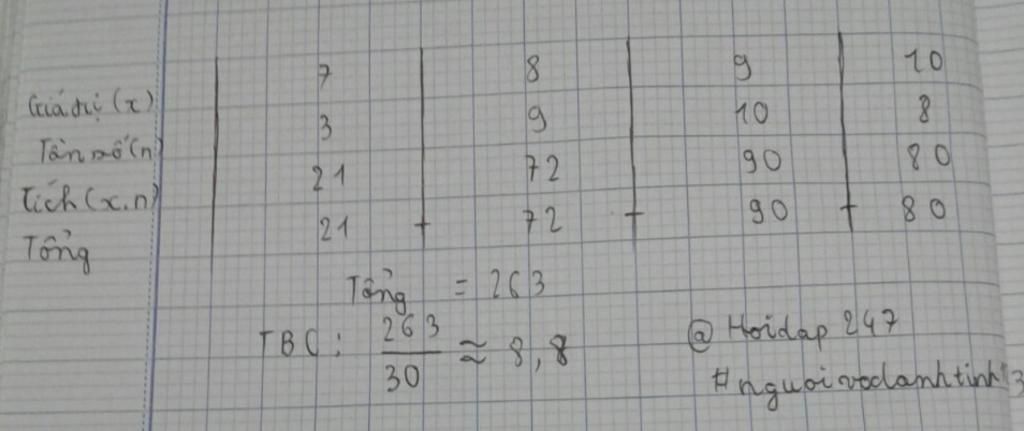 Giá trị (x) 7 8 9 10
Tần số (n) 3 9 10 8
Tích (x.n) 21 72 90 80
Tổng 21 + 72 + 90 + 80
Tổng = 263
TBC: 263/30 ≈ 8,8
@ Hoidap 247
#nguoivodanhtinh13